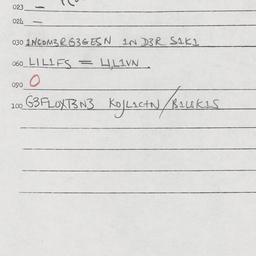 023 —
024 —
030 1NCOM3RG3GESN 1N D3R S1K1
060 L1L1FS = L1L1VN
090 O
100 G3FLOXT3N3 KOJL1C+N/B1LK1S